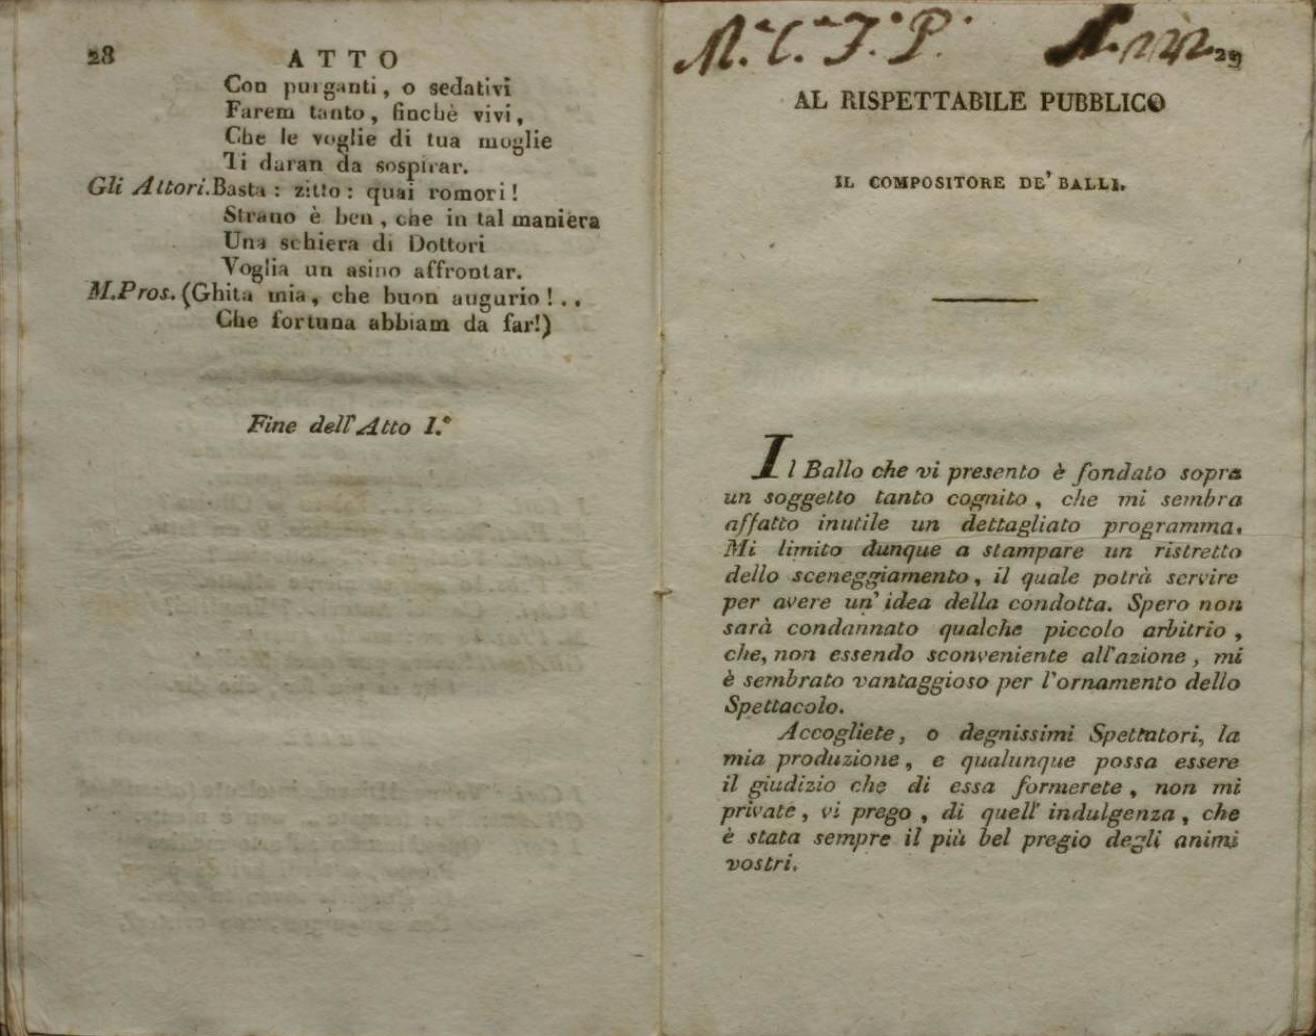 28 ATTO
Con purganti, o sedativi
Farem tanto, finchè vivi,
Che le voglie di tua moglie
Ti daran da sospirar.
Gli Attori. Basta: zitto: quai romori!
Strano è ben, che in tal maniera
Una schiera di Dottori
Voglia un asino affrontar.
M.Pros. (Ghita mia, che buon augurio!..
Che fortuna abbiam da far!)
Fine dell'Atto I.°
M.a C.a J.o P.
29
AL RISPETTABILE PUBBLICO
IL COMPOSITORE DE' BALLI.
Il Ballo che vi presento è fondato sopra
un soggetto tanto cognito, che mi sembra
affatto inutile un dettagliato programma.
Mi limito dunque a stampare un ristretto
dello sceneggiamento, il quale potrà servire
per avere un' idea della condotta. Spero non
sarà condannato qualche piccolo arbitrio,
che, non essendo sconveniente all'azione, mi
è sembrato vantaggioso per l'ornamento dello
Spettacolo.
Accogliete, o degnissimi Spettatori, la
mia produzione, e qualunque possa essere
il giudizio che di essa formerete, non mi
private, vi prego, di quell' indulgenza, che
è stata sempre il più bel pregio degli animi
vostri.